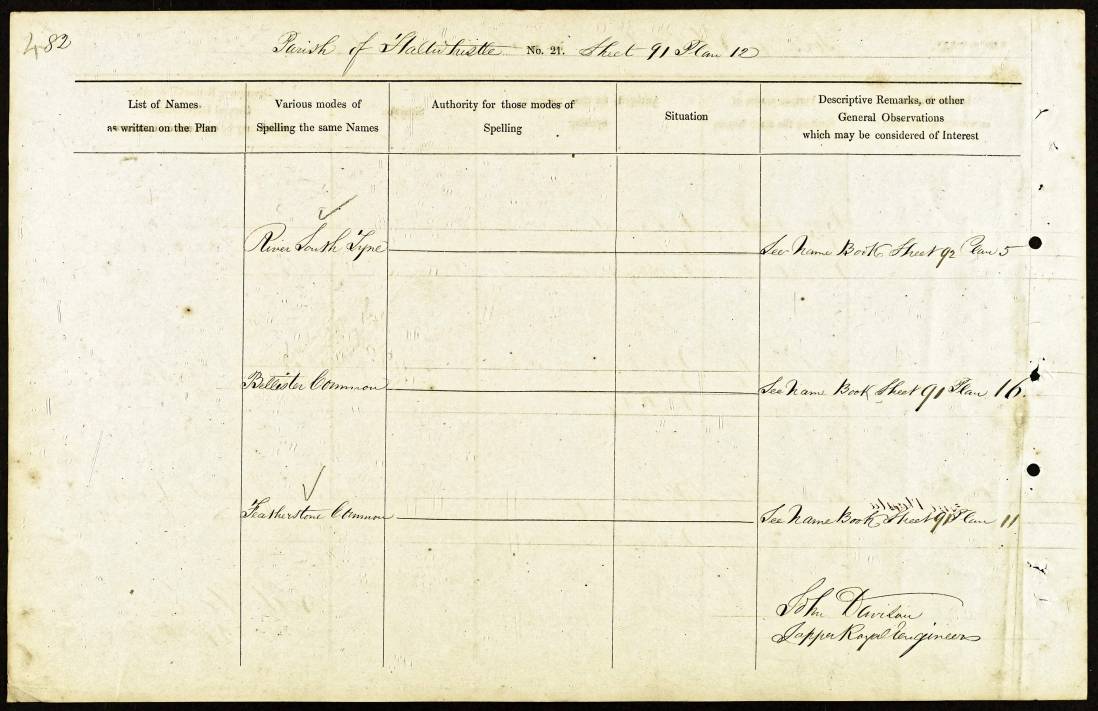 482
Parish of Haltwhistle No. 21. Sheet 91 Plan 12
List of Names as written on the Plan
Various modes of Spelling the same Names
Authority for those modes of Spelling
Situation
Descriptive Remarks, or other General Observations which may be considered of Interest
River South Tyne See Name Book Sheet 92 Plan 5
Bellister Common See Name Book Sheet 91 Plan 16.
Featherstone Common See Name Book Sheet 91 Plan 11
John Davison
Sapper Royal Engineers